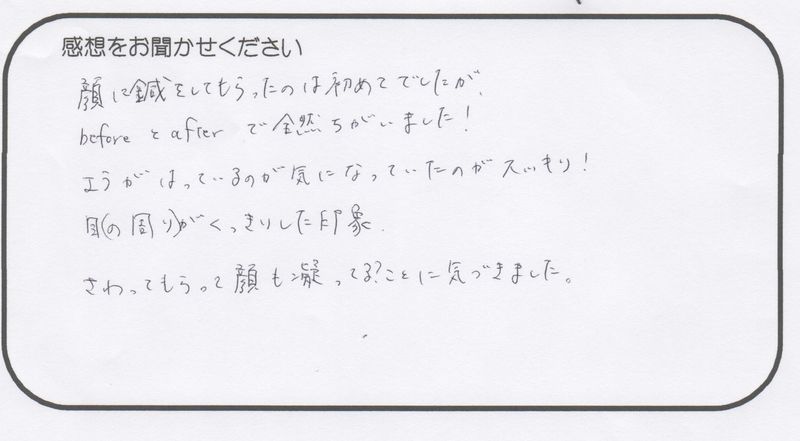 感想をお聞かせください
顔に鍼をしてもらったのは初めてでしたが、
beforeとafterで全然ちがいました!
エラがはっているのが気になっていたのがスッキリ!
目(の周り)がくっきりした印象.
さわってもらって顔も凝ってる?ことに気づきました。